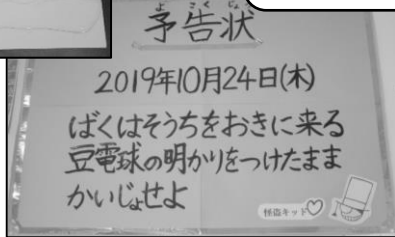 よこくじょう
予告状
2019年10月24日(木)
ばくはそうちをおきに来る
豆電球の明かりをつけたまま
かいじょせよ
怪盗キッド